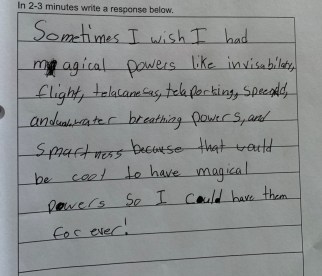 In 2-3 minutes write a response below.
Sometimes I wish I had
magical powers like invisability,
flight, telacanesas, telaporking, speed,
and water breathing powers, and
smartness because that would
be cool to have magical
powers so I could have them
for ever!